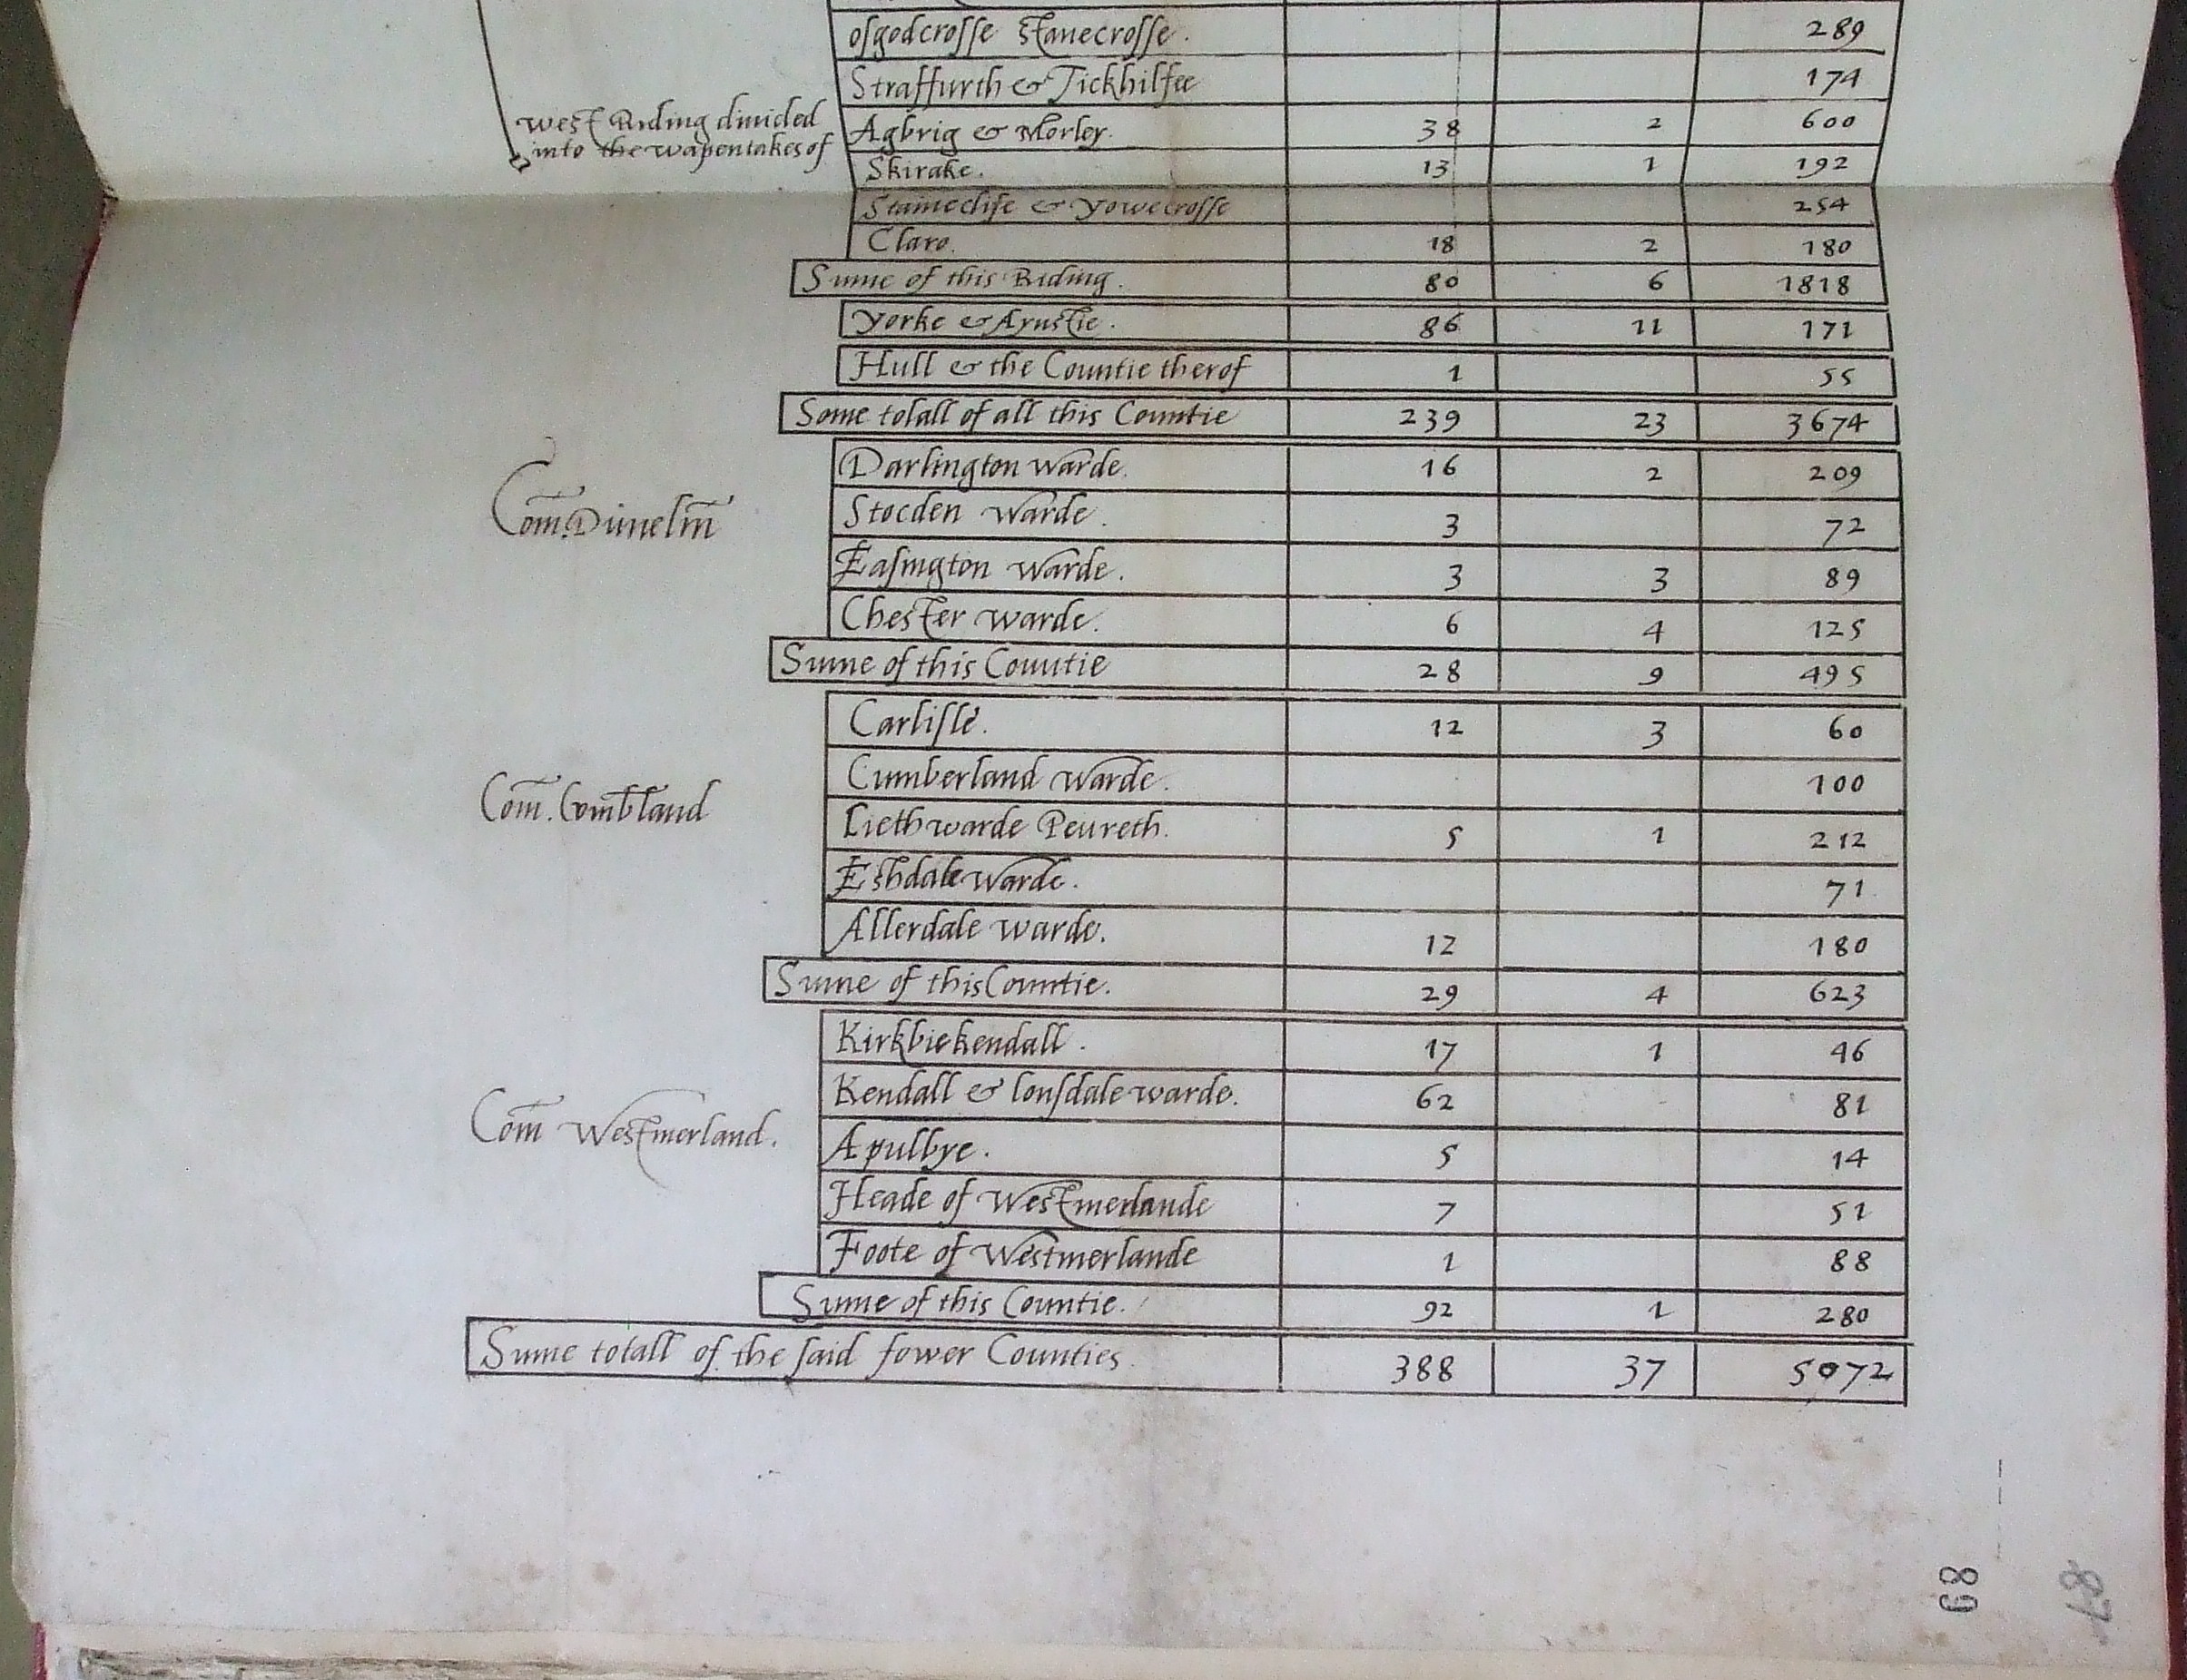 osgodcrosse Stanecrosse. 289
Straffurth & Tickhilfee 174
West Riding divided
into the wapentakes of
Agbrig & Morley. 38 2 600
Skirake. 13 1 192
Staineclife & Yowecrosse 254
Claro. 18 2 180
Sume of this Riding. 80 6 1818
Yorke & Aynstie. 86 11 171
Hull & the Countie therof 1 55
Some totall of all this Countie 239 23 3674
Com. Dunelm
Darlington warde. 16 2 209
Stocden warde. 3 72
Easington warde. 3 3 89
Chester warde. 6 4 125
Sume of this Countie 28 9 495
Com. Combland
Carlisle. 12 3 60
Cumberland warde. 100
Liethwarde Penreth. 5 1 212
Eshdale warde. 71
Allerdale warde. 12 180
Sume of this Countie. 29 4 623
Com Westmerland.
Kirkbiekendall. 17 1 46
Kendall & lonsdale warde. 62 81
Apulbye. 5 14
Heade of Westmerlande 7 51
Foote of Westmerlande 1 88
Sume of this Countie. 92 1 280
Sume totall of the said fower Counties. 388 37 5072
68
87